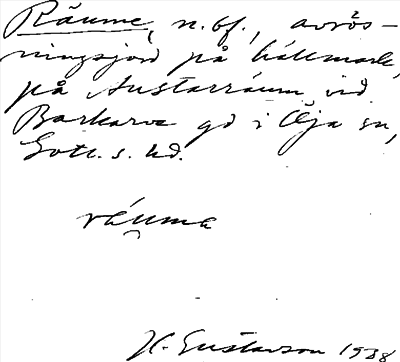 Räume, n. bf., avrös-
ningsjord på hällmark,
på Austarräum vid
Barkarve gd i Öja sn,
Gotl. s. hd.
räuma
H. Gustavson 1938